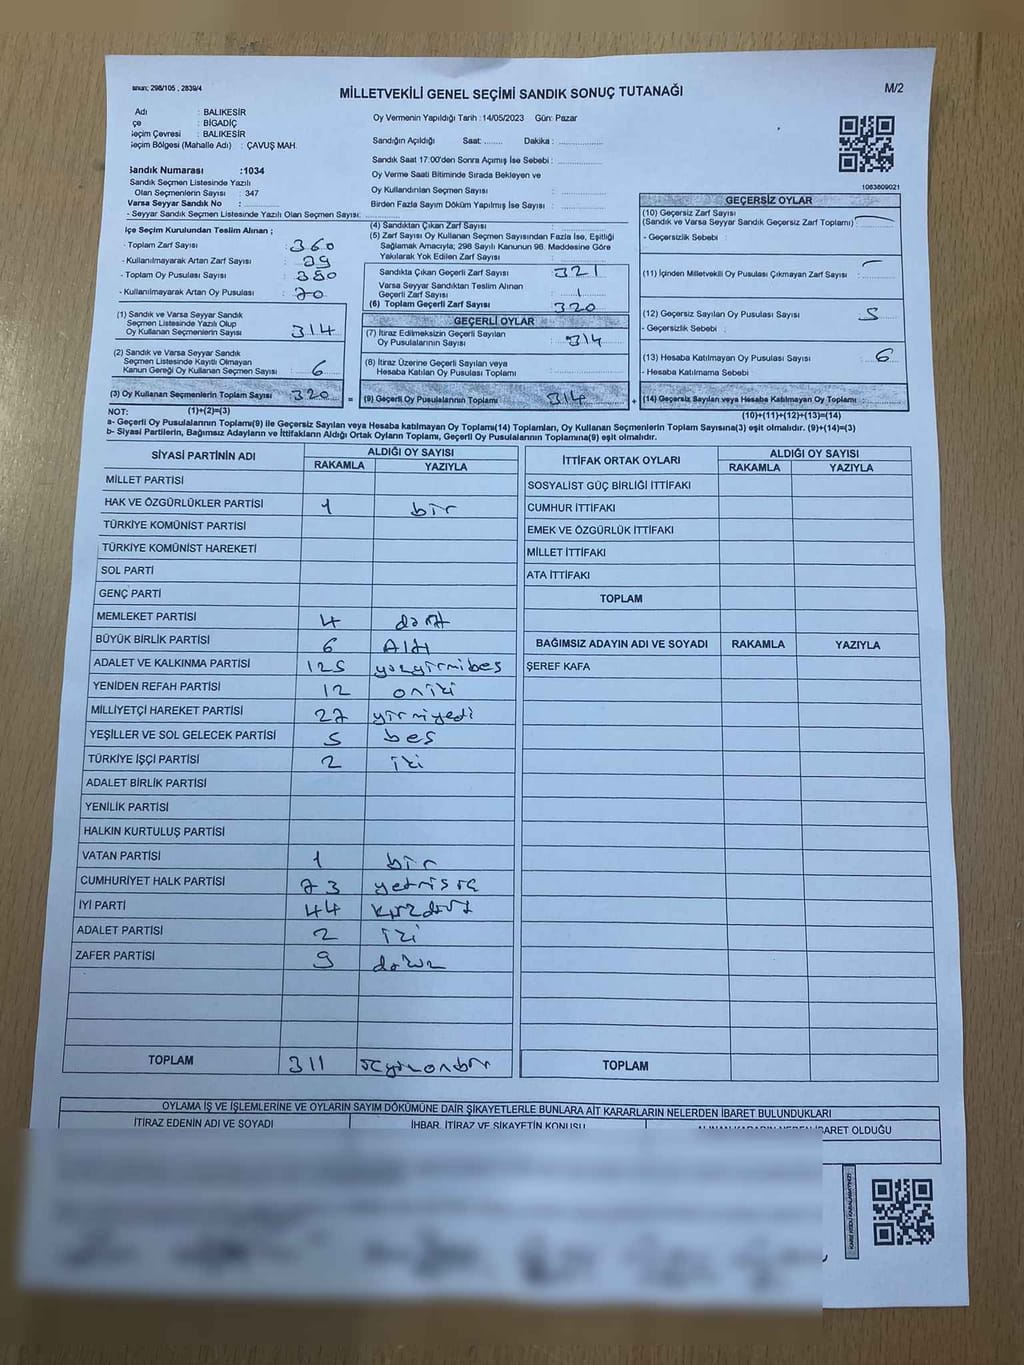 anun: 298/105 , 2839/4
MİLLETVEKİLİ GENEL SEÇİMİ SANDIK SONUÇ TUTANAĞI
M/2
Adı : BALIKESİR
çe : BİGADİÇ
eçim Çevresi : BALIKESİR
eçim Bölgesi (Mahalle Adı) : ÇAVUŞ MAH.
Oy Vermenin Yapıldığı Tarih :14/05/2023 Gün: Pazar
Sandığın Açıldığı Saat: ....... Dakika : ................
Sandık Saat 17:00'den Sonra Açımış İse Sebebi : ................
Oy Verme Saati Bitiminde Sırada Bekleyen ve
Oy Kullandırılan Seçmen Sayısı : ................
Birden Fazla Sayım Döküm Yapılmış İse Sayısı : ................
1083809021
Sandık Numarası :1034
Sandık Seçmen Listesinde Yazılı
Olan Seçmenlerin Sayısı : 347
Varsa Seyyar Sandık No :
- Seyyar Sandık Seçmen Listesinde Yazılı Olan Seçmen Sayısı:
İlçe Seçim Kurulundan Teslim Alınan ;
- Toplam Zarf Sayısı : 360
- Kullanılmayarak Artan Zarf Sayısı : 39
- Toplam Oy Pusulası Sayısı : 380
- Kullanılmayarak Artan Oy Pusulası : 70
(1) Sandık ve Varsa Seyyar Sandık
Seçmen Listesinde Yazılı Olup
Oy Kullanan Seçmenlerin Sayısı : 314
(2) Sandık ve Varsa Seyyar Sandık
Seçmen Listesinde Kayıtlı Olmayan
Kanun Gereği Oy Kullanan Seçmen Sayısı : 6
(3) Oy Kullanan Seçmenlerin Toplam Sayısı 320 =
(4) Sandıktan Çıkan Zarf Sayısı :
(5) Zarf Sayısı Oy Kullanan Seçmen Sayısından Fazla İse, Eşitliği
Sağlamak Amacıyla; 298 Sayılı Kanunun 98. Maddesine Göre
Yakılarak Yok Edilen Zarf Sayısı :
Sandıkta Çıkan Geçerli Zarf Sayısı : 321
Varsa Seyyar Sandıktan Teslim Alınan
Geçerli Zarf Sayısı : 1
(6) Toplam Geçerli Zarf Sayısı : 320
GEÇERLİ OYLAR
(7) İtiraz Edilmeksizin Geçerli Sayılan
Oy Pusulalarının Sayısı : 314
(8) İtiraz Üzerine Geçerli Sayılan veya
Hesaba Katılan Oy Pusulası Toplamı :
(9) Geçerli Oy Pusulalarının Toplamı : 314 +
GEÇERSİZ OYLAR
(10) Geçersiz Zarf Sayısı
(Sandık ve Varsa Seyyar Sandık Geçersiz Zarf Toplamı) :
- Geçersizlik Sebebi :
(11) İçinden Milletvekili Oy Pusulası Çıkmayan Zarf Sayısı :
(12) Geçersiz Sayılan Oy Pusulası Sayısı : 5
- Geçersizlik Sebebi :
(13) Hesaba Katılmayan Oy Pusulası Sayısı : 6
- Hesaba Katılmama Sebebi
(14) Geçersiz Sayılan veya Hesaba Katılmayan Oy Toplamı :
NOT: (1)+(2)=(3)
(10)+(11)+(12)+(13)=(14)
a- Geçerli Oy Pusulalarının Toplamı(9) ile Geçersiz Sayılan veya Hesaba Katılmayan Oy Toplamı(14) Toplamları, Oy Kullanan Seçmenlerin Toplam Sayısına(3) eşit olmalıdır. (9)+(14)=(3)
b- Siyasi Partilerin, Bağımsız Adayların ve İttifakların Aldığı Ortak Oyların Toplamı, Geçerli Oy Pusulalarının Toplamına(9) eşit olmalıdır.
SİYASİ PARTİNİN ADI ALDIĞI OY SAYISI
RAKAMLA YAZIYLA
MİLLET PARTİSİ
HAK VE ÖZGÜRLÜKLER PARTİSİ 1 bir
TÜRKİYE KOMÜNİST PARTİSİ
TÜRKİYE KOMÜNİST HAREKETİ
SOL PARTİ
GENÇ PARTİ
MEMLEKET PARTİSİ 4 dört
BÜYÜK BİRLİK PARTİSİ 6 Altı
ADALET VE KALKINMA PARTİSİ 125 yüzyirmibeş
YENİDEN REFAH PARTİSİ 12 oniki
MİLLİYETÇİ HAREKET PARTİSİ 27 yirmiyedi
YEŞİLLER VE SOL GELECEK PARTİSİ 5 beş
TÜRKİYE İŞÇİ PARTİSİ 2 iki
ADALET BİRLİK PARTİSİ
YENİLİK PARTİSİ
HALKIN KURTULUŞ PARTİSİ
VATAN PARTİSİ 1 bir
CUMHURİYET HALK PARTİSİ 73 yetmişüç
İYİ PARTİ 44 kırkdört
ADALET PARTİSİ 2 iki
ZAFER PARTİSİ 9 dokuz
TOPLAM 311 üçyüzonbir
İTTİFAK ORTAK OYLARI ALDIĞI OY SAYISI
RAKAMLA YAZIYLA
SOSYALİST GÜÇ BİRLİĞİ İTTİFAKI
CUMHUR İTTİFAKI
EMEK VE ÖZGÜRLÜK İTTİFAKI
MİLLET İTTİFAKI
ATA İTTİFAKI
TOPLAM
BAĞIMSIZ ADAYIN ADI VE SOYADI RAKAMLA YAZIYLA
ŞEREF KAFA
TOPLAM
OYLAMA İŞ VE İŞLEMLERİNE VE OYLARIN SAYIM DÖKÜMÜNE DAİR ŞİKAYETLERLE BUNLARA AİT KARARLARIN NELERDEN İBARET BULUNDUKLARI
İTİRAZ EDENİN ADI VE SOYADI İHBAR, İTİRAZ VE ŞİKAYETİN KONUSU ALINAN KARARIN NEDEN İBARET OLDUĞU